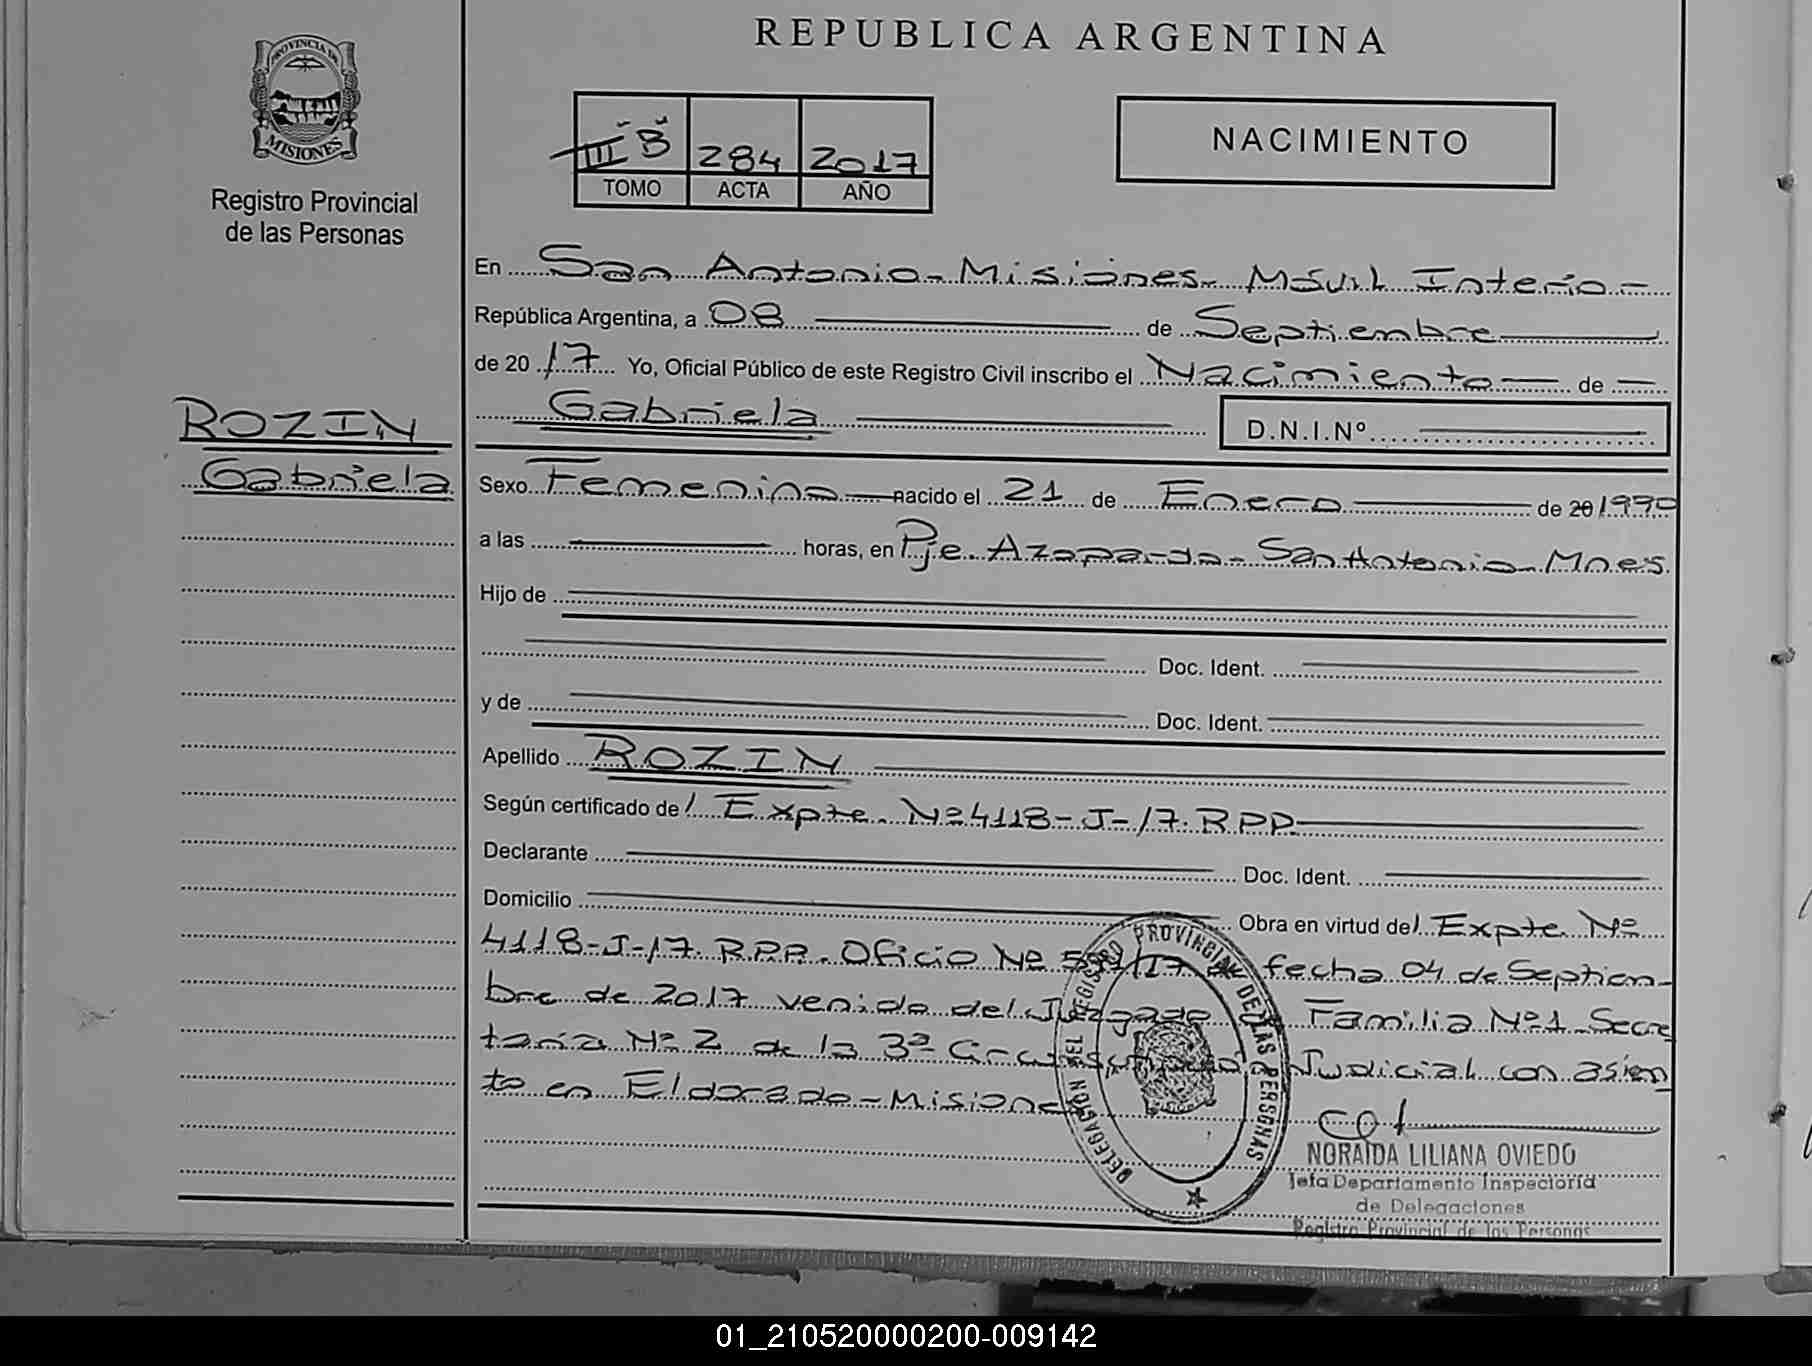 REPUBLICA ARGENTINA
PROVINCIA DE
MISIONES
Registro Provincial
de las Personas
III "B" 284 2017
TOMO ACTA AÑO
NACIMIENTO
En San Antonio - Misiones - Móvil Interio -
República Argentina, a 08 de Septiembre
de 20 17 Yo, Oficial Público de este Registro Civil inscribo el Nacimiento de
Gabriela D.N.I.Nº
ROZIN
Gabriela
Sexo Femenino nacido el 21 de Enero de 20 1990
a las horas, en Pje. Azopardo - San Antonio - Mnes.
Hijo de
Doc. Ident.
y de Doc. Ident.
Apellido ROZIN
Según certificado de l Expte. Nº 4118-J-17. RPP
Declarante Doc. Ident.
Domicilio Obra en virtud del Expte Nº
4118-J-17. R.P.P. Oficio Nº fecha 04 de Septiem-
bre de 2017 venido del Juzgado Familia Nº 1 Secre
taría Nº 2 de la 3ª Judicial con asien
to en Eldorado - Misiones
NORAIDA LILIANA OVIEDO
Jefa Departamento Inspectoría
de Delegaciones
Registro Provincial de las Personas
DELEGACION DEL REGISTRO PROVINCIAL DE LAS PERSONAS
01_210520000200-009142